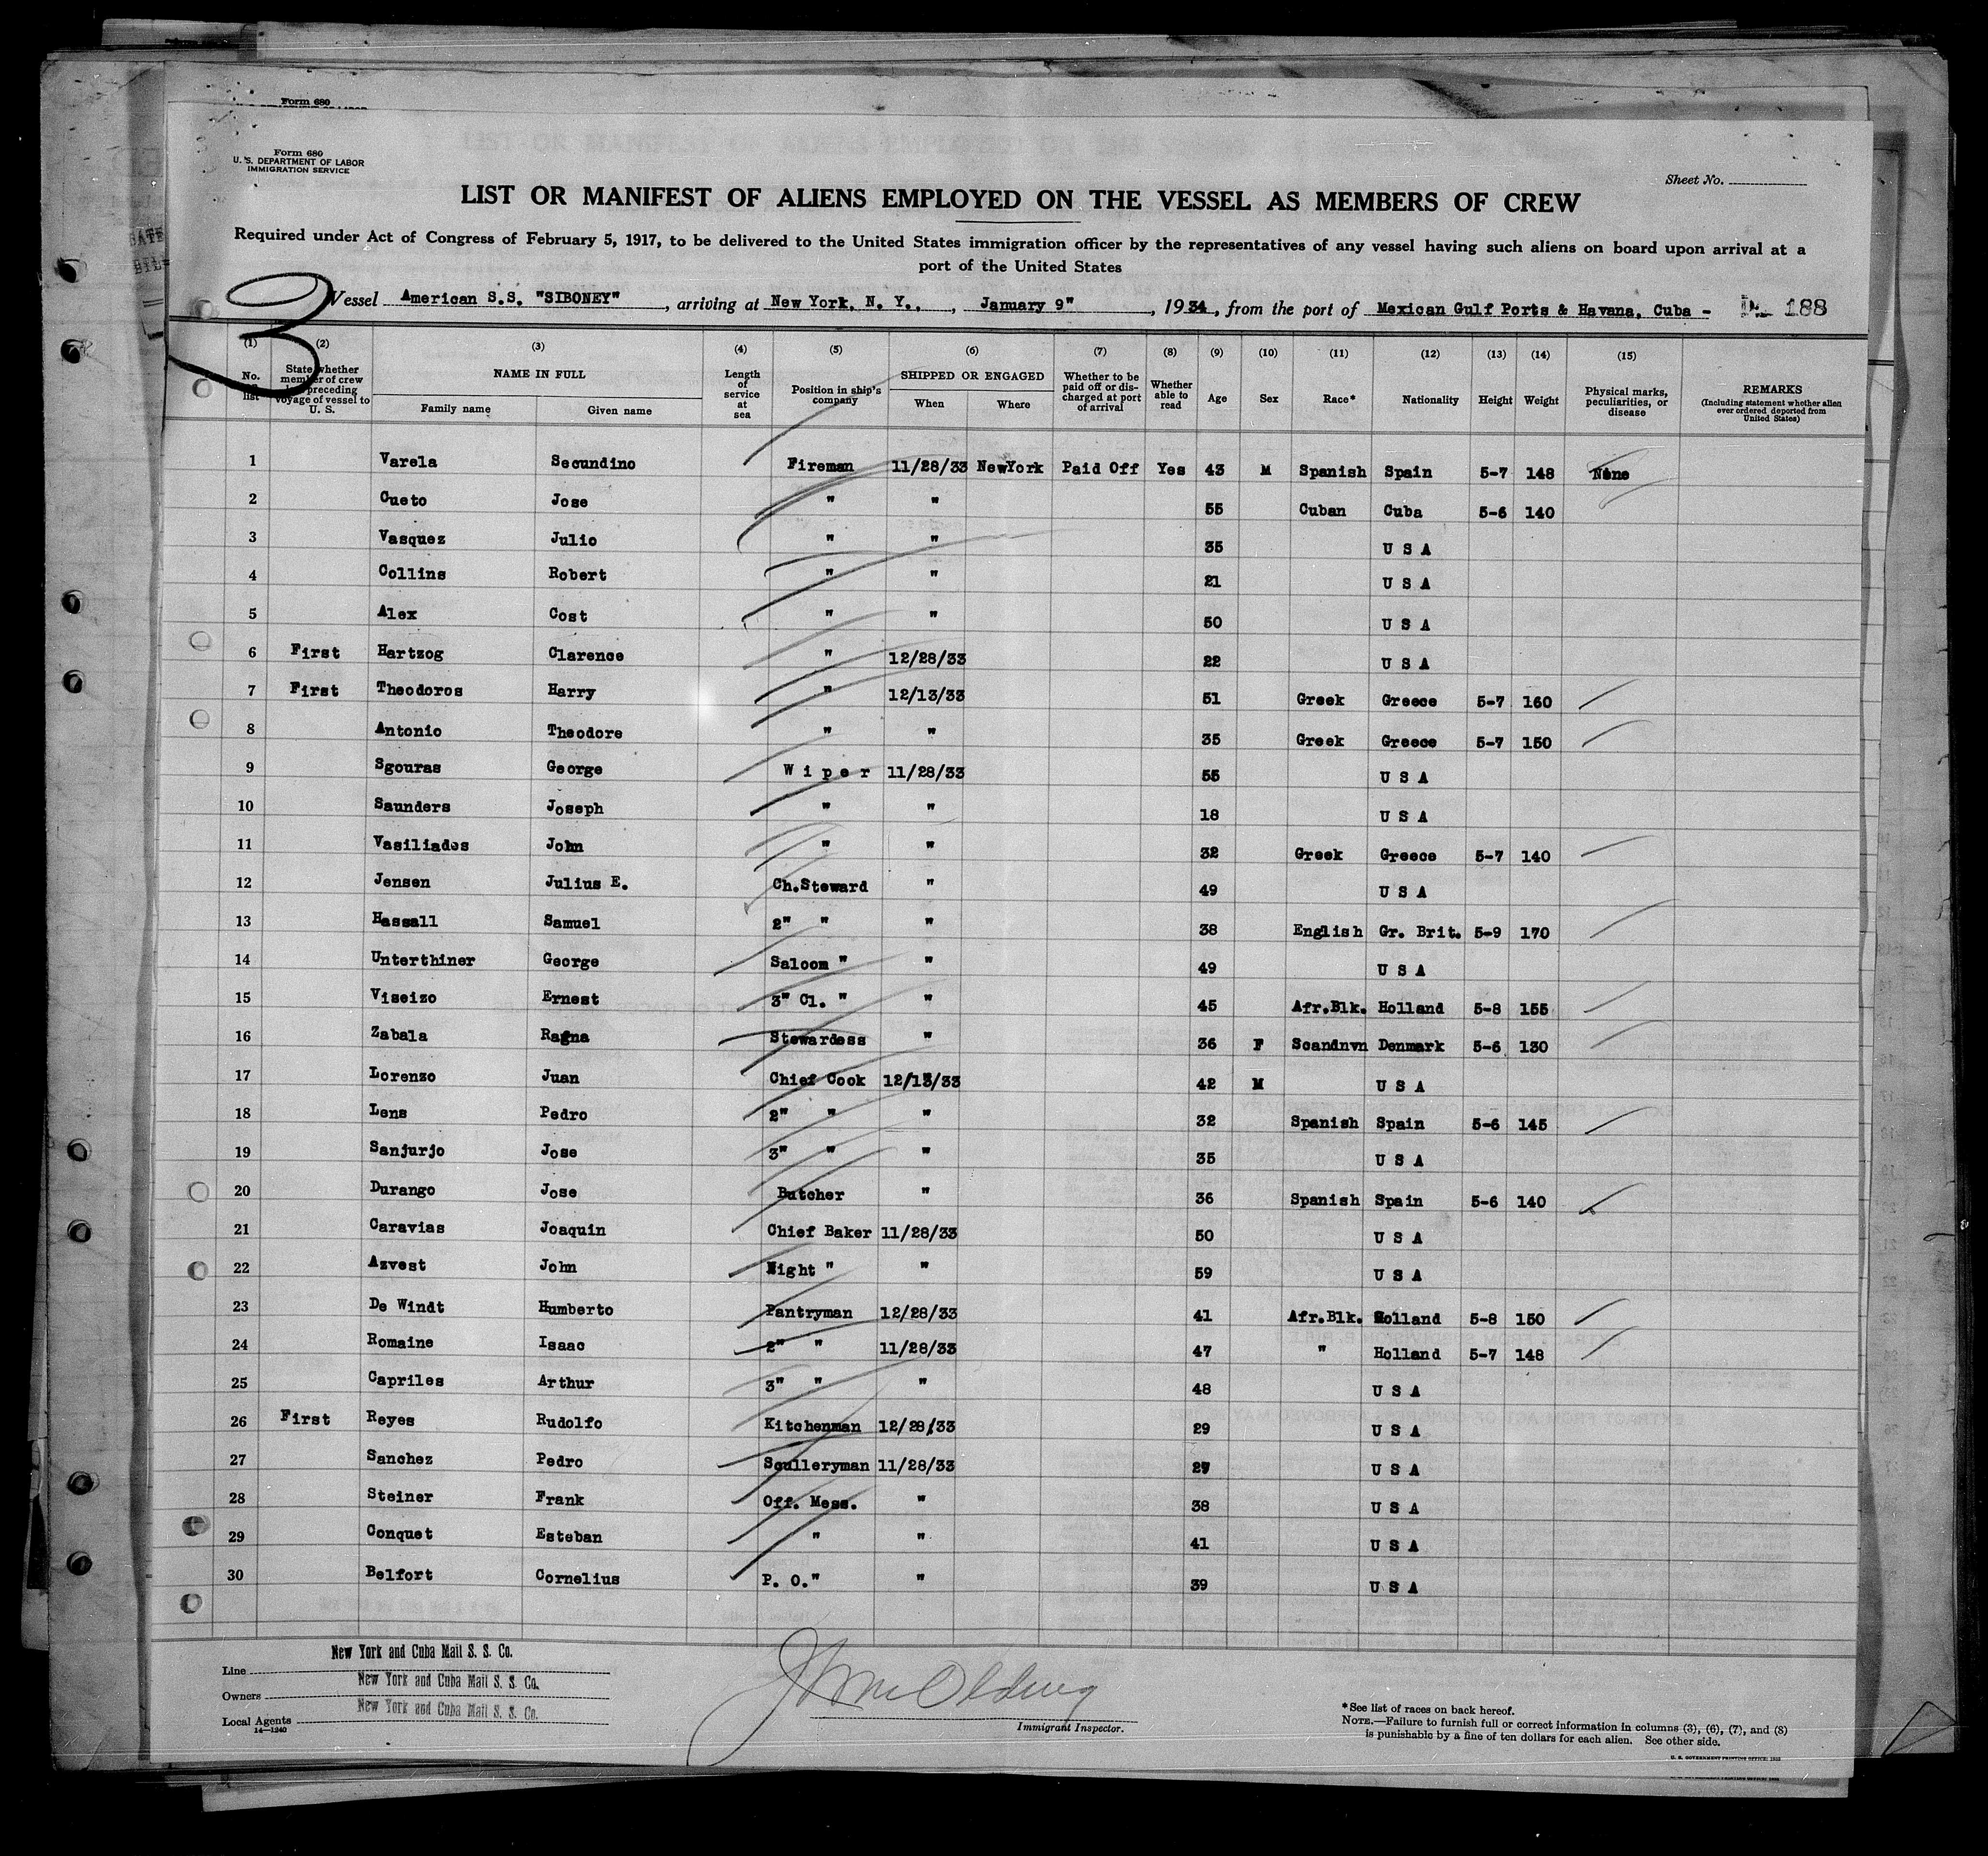 Form 680
Form 680
U. S. DEPARTMENT OF LABOR
IMMIGRATION SERVICE
Sheet No.
LIST OR MANIFEST OF ALIENS EMPLOYED ON THE VESSEL AS MEMBERS OF CREW
Required under Act of Congress of February 5, 1917, to be delivered to the United States immigration officer by the representatives of any vessel having such aliens on board upon arrival at a
port of the United States
3
Vessel American S.S. "SIBONEY", arriving at New York, N. Y., January 9", 1934, from the port of Mexican Gulf Ports & Havana, Cuba - 188
(1) (2) (3) (4) (5) (6) (7) (8) (9) (10) (11) (12) (13) (14) (15)
No. list State whether member of crew preceding voyage of vessel to U. S. NAME IN FULL Family name Given name Length of service at sea Position in ship's company SHIPPED OR ENGAGED When Where Whether to be paid off or discharged at port of arrival Whether able to read Age Sex Race* Nationality Height Weight Physical marks, peculiarities, or disease REMARKS (Including statement whether alien ever ordered deported from United States)
1 Varela Secundino Fireman 11/28/33 NewYork Paid Off Yes 43 M Spanish Spain 5-7 148 None
2 Cueto Jose " " 55 Cuban Cuba 5-6 140
3 Vasquez Julio " " 35 U S A
4 Collins Robert " " 21 U S A
5 Alex Cost " " 50 U S A
6 First Hartzog Clarence " 12/28/33 22 U S A
7 First Theodoros Harry " 12/13/33 51 Greek Greece 5-7 160
8 Antonio Theodore " " 35 Greek Greece 5-7 150
9 Sgouras George Wiper 11/28/33 55 U S A
10 Saunders Joseph " " 18 U S A
11 Vasiliados John " " 32 Greek Greece 5-7 140
12 Jensen Julius E. Ch.Steward " 49 U S A
13 Hassall Samuel 2" " " 38 English Gr. Brit. 5-9 170
14 Unterthiner George Saloom " " 49 U S A
15 Viseizo Ernest 3" Cl. " " 45 Afr.Blk. Holland 5-8 155
16 Zabala Ragna Stewardess " 36 F Scandnvn Denmark 5-6 130
17 Lorenzo Juan Chief Cook 12/13/33 42 M U S A
18 Lens Pedro 2" " " 32 Spanish Spain 5-6 145
19 Sanjurjo Jose 3" " " 35 U S A
20 Durango Jose Butcher " 36 Spanish Spain 5-6 140
21 Caravias Joaquin Chief Baker 11/28/33 50 U S A
22 Azvest John Night " " 59 U S A
23 De Windt Humberto Pantryman 12/28/33 41 Afr.Blk. Holland 5-8 150
24 Romaine Isaac 2" " 11/28/33 47 " Holland 5-7 148
25 Capriles Arthur 3" " " 48 U S A
26 First Reyes Rudolfo Kitchenman 12/28/33 29 U S A
27 Sanchez Pedro Sculleryman 11/28/33 27 U S A
28 Steiner Frank Off. Mess. " 38 U S A
29 Conquet Esteban " " 41 U S A
30 Belfort Cornelius P. O." " 39 U S A
Line New York and Cuba Mail S. S. Co.
Owners New York and Cuba Mail S. S. Co.
Local Agents New York and Cuba Mail S. S. Co.
14—1240
Immigrant Inspector.
*See list of races on back hereof.
NOTE.—Failure to furnish full or correct information in columns (3), (6), (7), and (8)
is punishable by a fine of ten dollars for each alien. See other side.
U. S. GOVERNMENT PRINTING OFFICE: